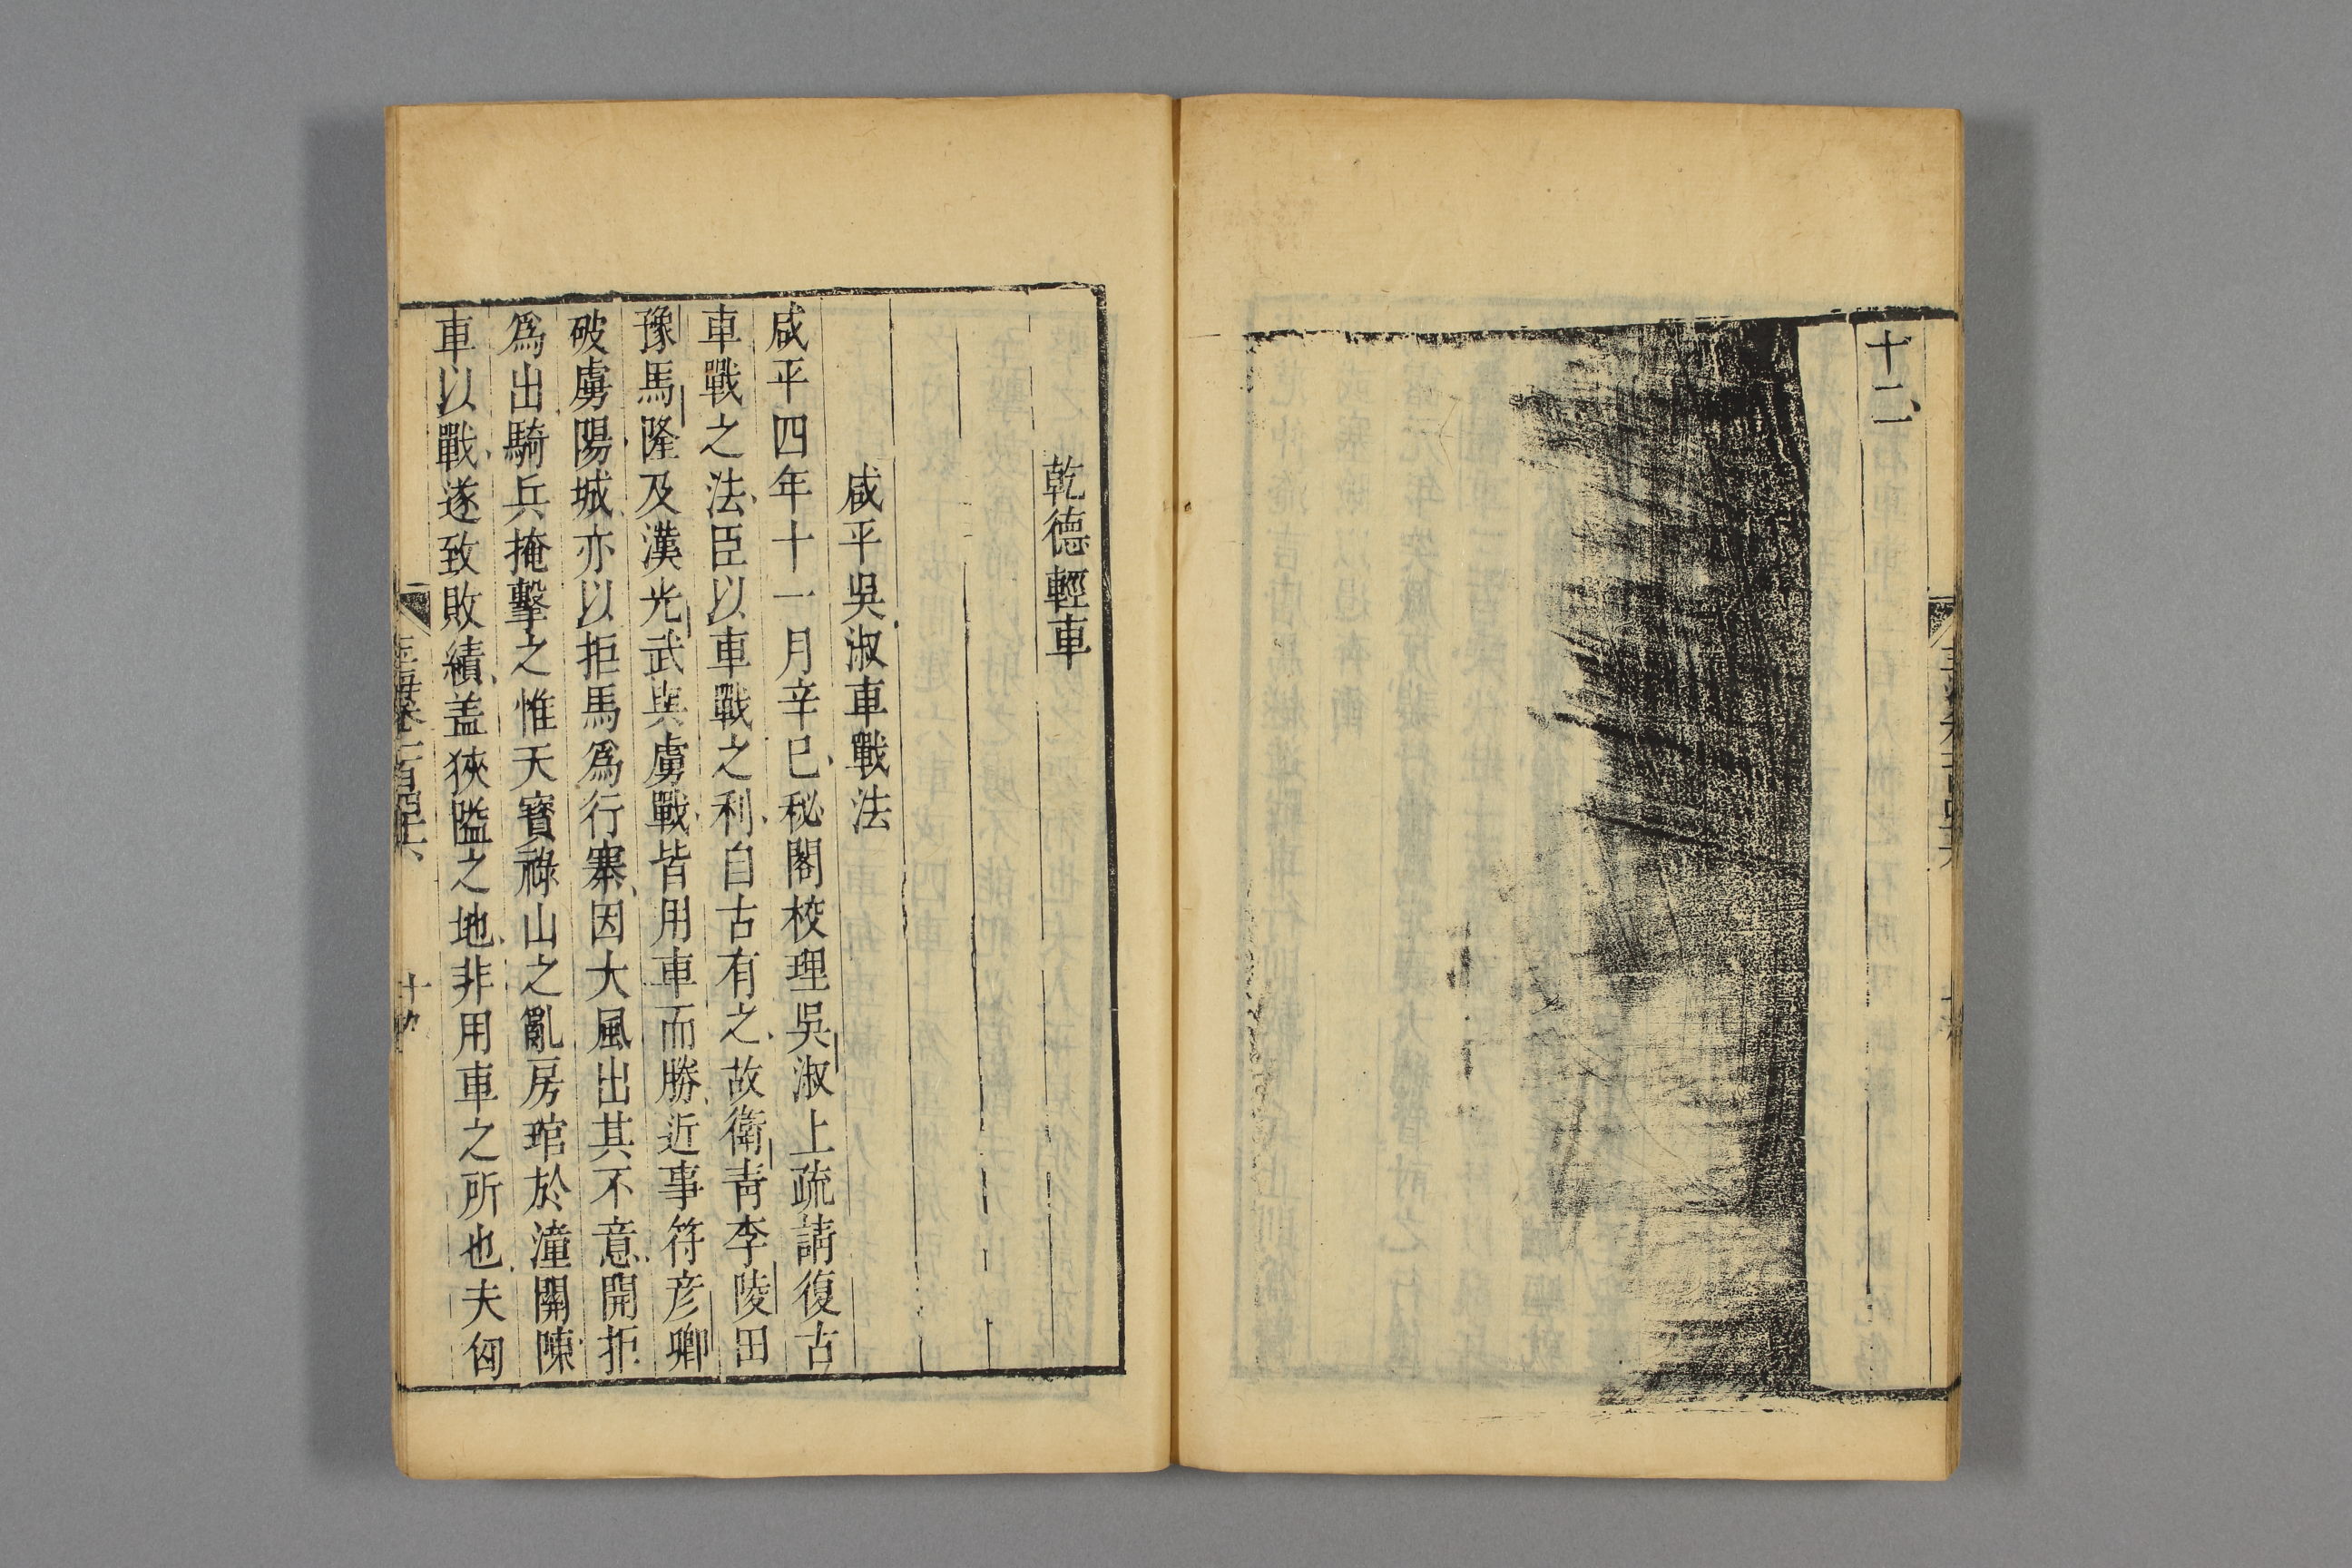 十二
乾德輕車
咸平吳淑車戰法
咸平四年十一月辛巳秘閣校理吳淑上疏請復古
車戰之法臣以車戰之利自古有之故衛靑李陵田
豫馬隆及漢光武與虜戰皆用車而勝近事符彦卿
破虜陽城亦以拒馬爲行寨因大風出其不意開拒
爲出騎兵掩擊之惟天寳祿山之亂房琯於潼關陳
車以戰遂致敗績盖狹隘之地非用車之所也夫匈